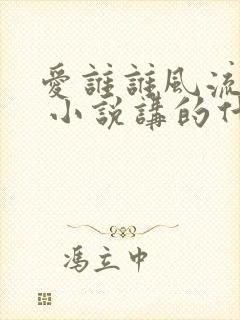 愛誰誰風流
小説講的什
馮立中